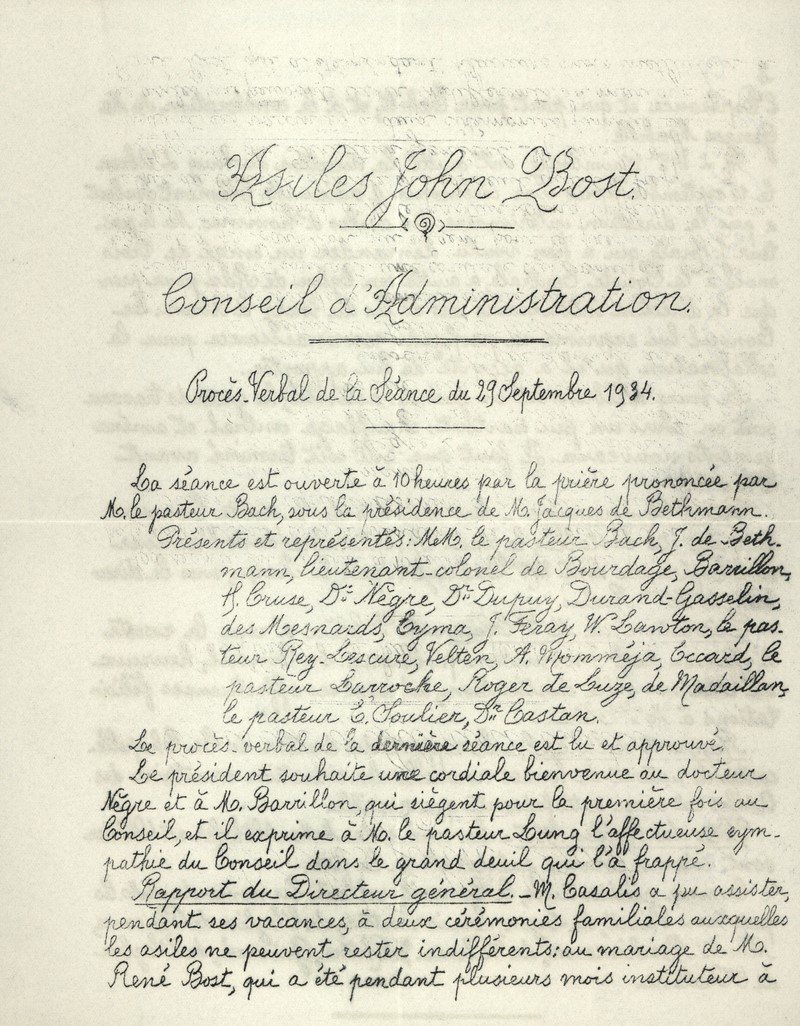 Asiles John Bost.
Conseil d'Administration.
Procès-Verbal de la Séance du 29 Septembre 1934.
La séance est ouverte à 10 heures par la prière prononcée par
M. le pasteur Bach, sous la présidence de M. Jacques de Bethmann.
Présents et représentés: MM. le pasteur Bach, J. de Beth-
mann, lieutenant-colonel de Bourdage, Barrillon,
H. Cruse, Dr Nègre, Dr Dupuy, Durand-Gasselin,
des Mesnards, Eyma, J. Feray, W. Lawton, le pas-
teur Rey-Lescure, Velten, A. Momméja, Eccard, le
pasteur Larroche, Roger de Luze, de Madaillan,
le pasteur E. Soulier, Dr Castan.
Le procès-verbal de la dernière séance est lu et approuvé.
Le président souhaite une cordiale bienvenue au docteur
Nègre et à M. Barrillon, qui siègent pour la première fois au
Conseil, et il exprime à M. le pasteur Lung l'affectueuse sym-
pathie du Conseil dans le grand deuil qui l'a frappé.
Rapport du Directeur général. - M. Casalis a pu assister,
pendant ses vacances, à deux cérémonies familiales auxquelles
les asiles ne peuvent rester indifférents: au mariage de M.
René Bost, qui a été pendant plusieurs mois instituteur à